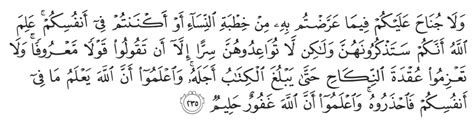 وَلَا جُنَاحَ عَلَيْكُمْ فِيمَا عَرَّضْتُم بِهِۦ مِنْ خِطْبَةِ ٱلنِّسَآءِ أَوْ أَكْنَنتُمْ فِىٓ أَنفُسِكُمْ ۚ عَلِمَ
ٱللَّهُ أَنَّكُمْ سَتَذْكُرُونَهُنَّ وَلَٰكِن لَّا تُوَاعِدُوهُنَّ سِرًّا إِلَّآ أَن تَقُولُوا۟ قَوْلًا مَّعْرُوفًا ۚ وَلَا
تَعْزِمُوا۟ عُقْدَةَ ٱلنِّكَاحِ حَتَّىٰ يَبْلُغَ ٱلْكِتَٰبُ أَجَلَهُۥ ۚ وَٱعْلَمُوٓا۟ أَنَّ ٱللَّهَ يَعْلَمُ مَا فِىٓ
أَنفُسِكُمْ فَٱحْذَرُوهُ ۚ وَٱعْلَمُوٓا۟ أَنَّ ٱللَّهَ غَفُورٌ حَلِيمٌ ٢٣٥